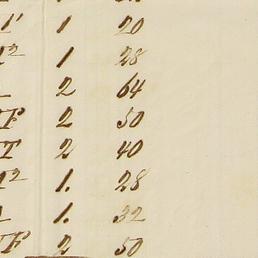 1 20
1 28
2 64
F 2 50
T 2 40
2 1. 28
1. 32
F 2 50